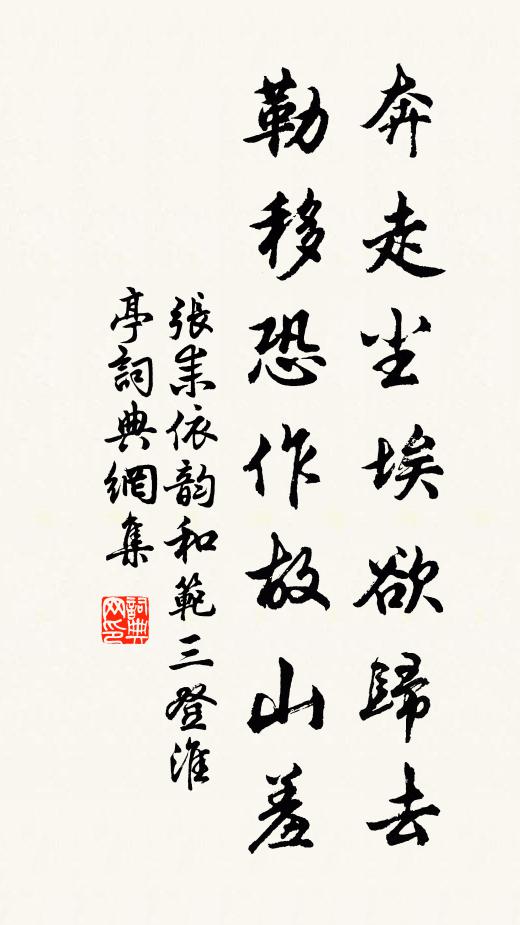 奔走尘埃欲歸去
勒移恐作故山羞
張耒依韵和範三登淮
亭詞典網集
詞典网印